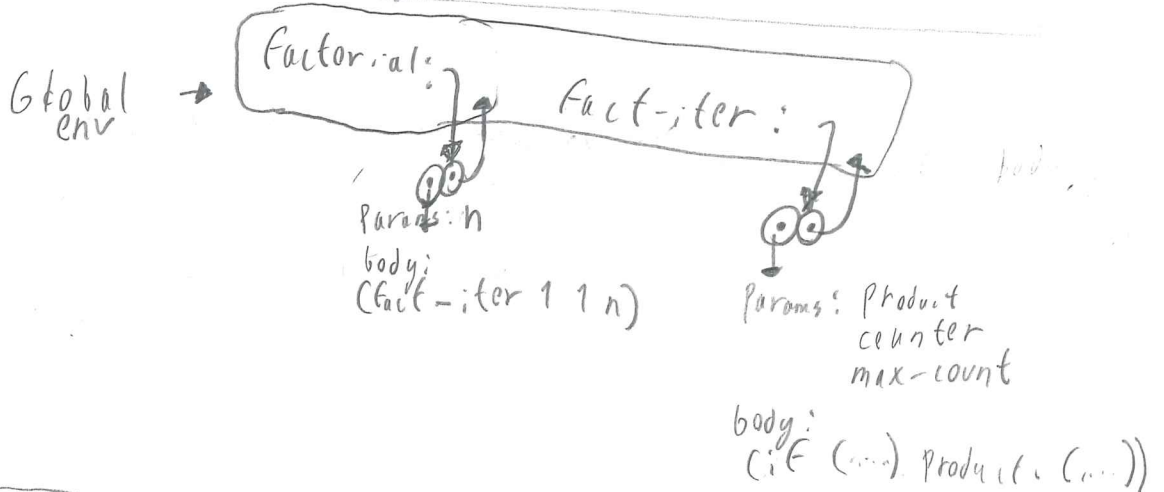 Global
env
factorial:
fact-iter:
Params: n
body:
(fact-iter 1 1 n)
Params: product
counter
max-count
body:
(if (....) product (....))